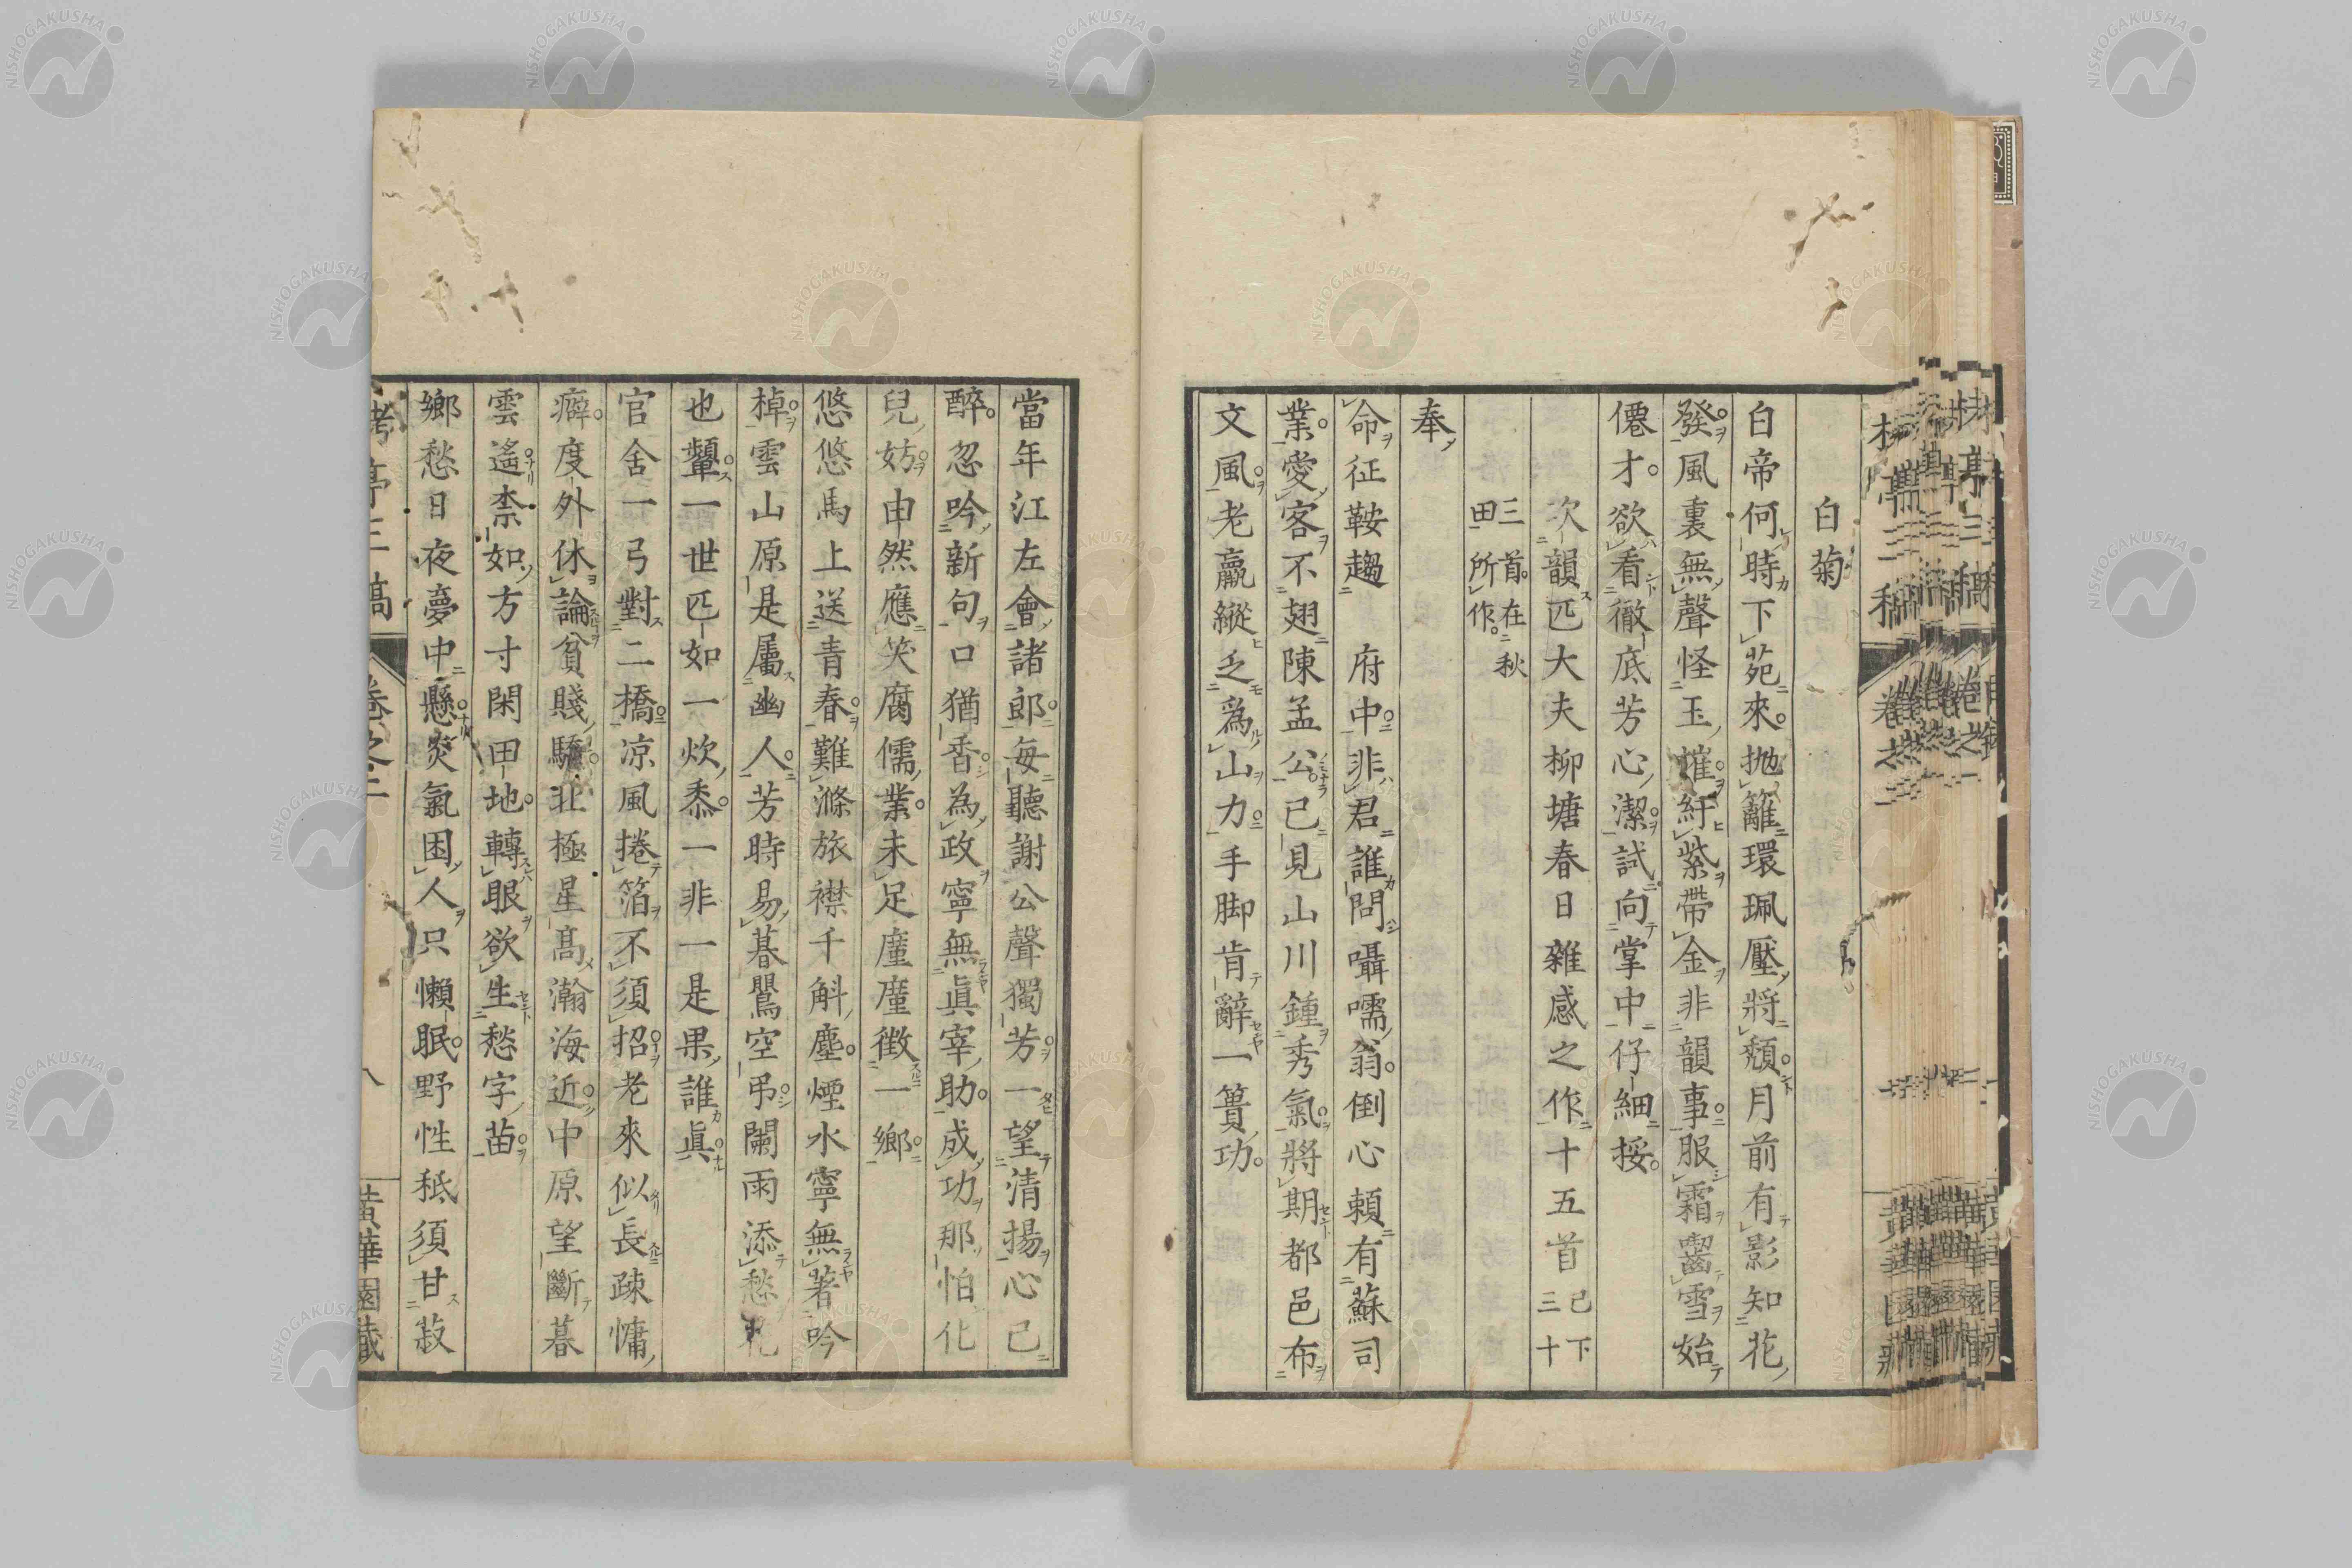 白菊
白帝何時下苑來抛籬環珮壓將頽月前有影知花
發風裏無聲怪玉摧紆紫帶金非韻事服霜嚙雪始
僊才欲看徹底芳心潔試向掌中仔細挼
次韻匹大夫柳塘春日雜感之作十五首己下三十
三首在秋田所作
奉
命征鞍趨府中非君誰問囁嚅翁倒心頼有蘇司
業愛客不翅陳孟公已見山川鍾秀氣將期都邑布
文風老羸縱乏為山力手脚肯辭一簣功
當年江左會諸郎毎聽謝公聲獨芳一望清揚心已
醉忽吟新句口猶香為政寧無眞宰助成功那怕化
兒妨由然應笑腐儒業未足廑廑徴一鄉
悠悠馬上送青春難滌旅襟千斛塵煙水寧無著吟
棹雲山原是屬幽人芳時易暮鸎空弔閑雨添愁花
也顰一世匹如一炊黍一非一是果誰眞
官舍一弓對二橋凉風捲箔不須招老來似長疎慵
癖度外休論貧賤驕北極星高瀚海近中原望斷暮
雲遙柰如方寸閑田地轉眼欲生愁字苗
鄉愁日夜夢中懸炎氣困人只懶眠野性秪須甘菽
卷之二
八
黄華園藏